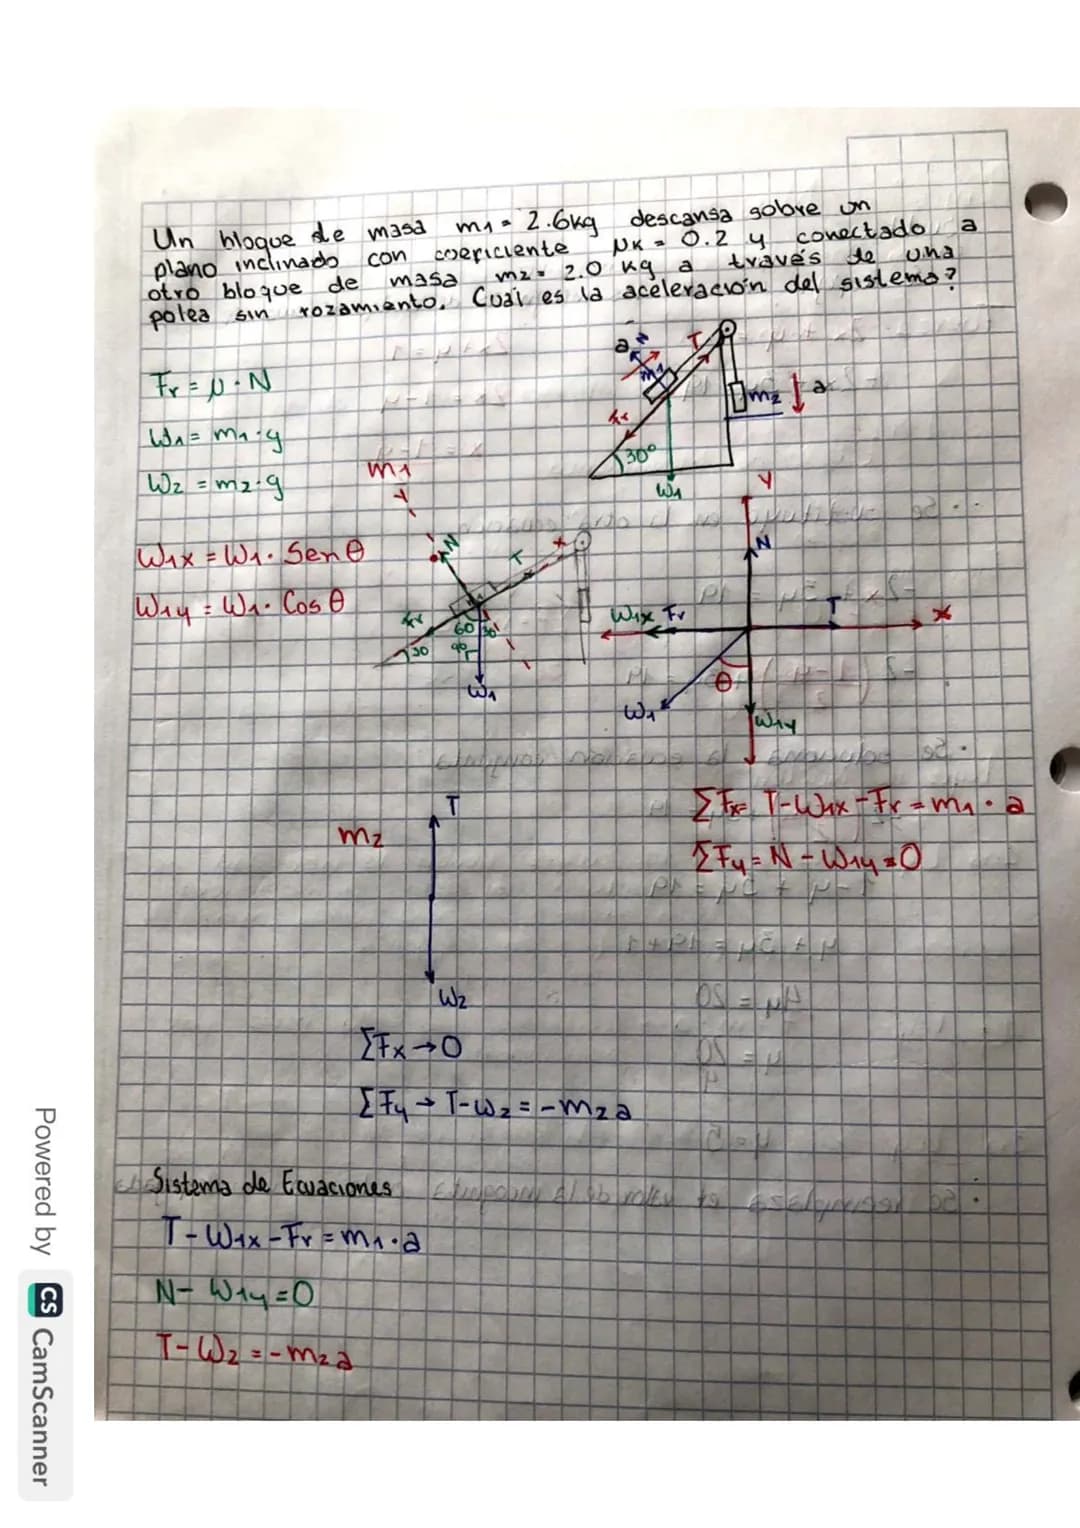 Un bloque de masa m1 = 2.6kg descansa sobre un
plano inclinado con coericiente μk = 0.2 y conectado a
otro bloque de masa m2 = 2.0 kg a través de una
polea sin rozamiento. Cual es la aceleración del sistema?
Fr = μ · N
W1 = m1 · g
W2 = m2 · g
W1x = W1 · Sen θ
W1y = W1 · Cos θ
a N T
m1
m2 a
fr
30°
W1
m1
Y
N T x
fr
60 30
30 90
W1
Y
N
W1x Fr T x
θ
W1
W1y
ΣFx= T-W1x-Fr = m1 · a
ΣFy = N - W1y = 0
m2
T
W2
ΣFx → 0
ΣFy → T-W2 = -m2a
Sistema de Ecuaciones
T - W1x - Fr = m1 · a
N - W1y = 0
T - W2 = - m2a
Powered by CS CamScanner